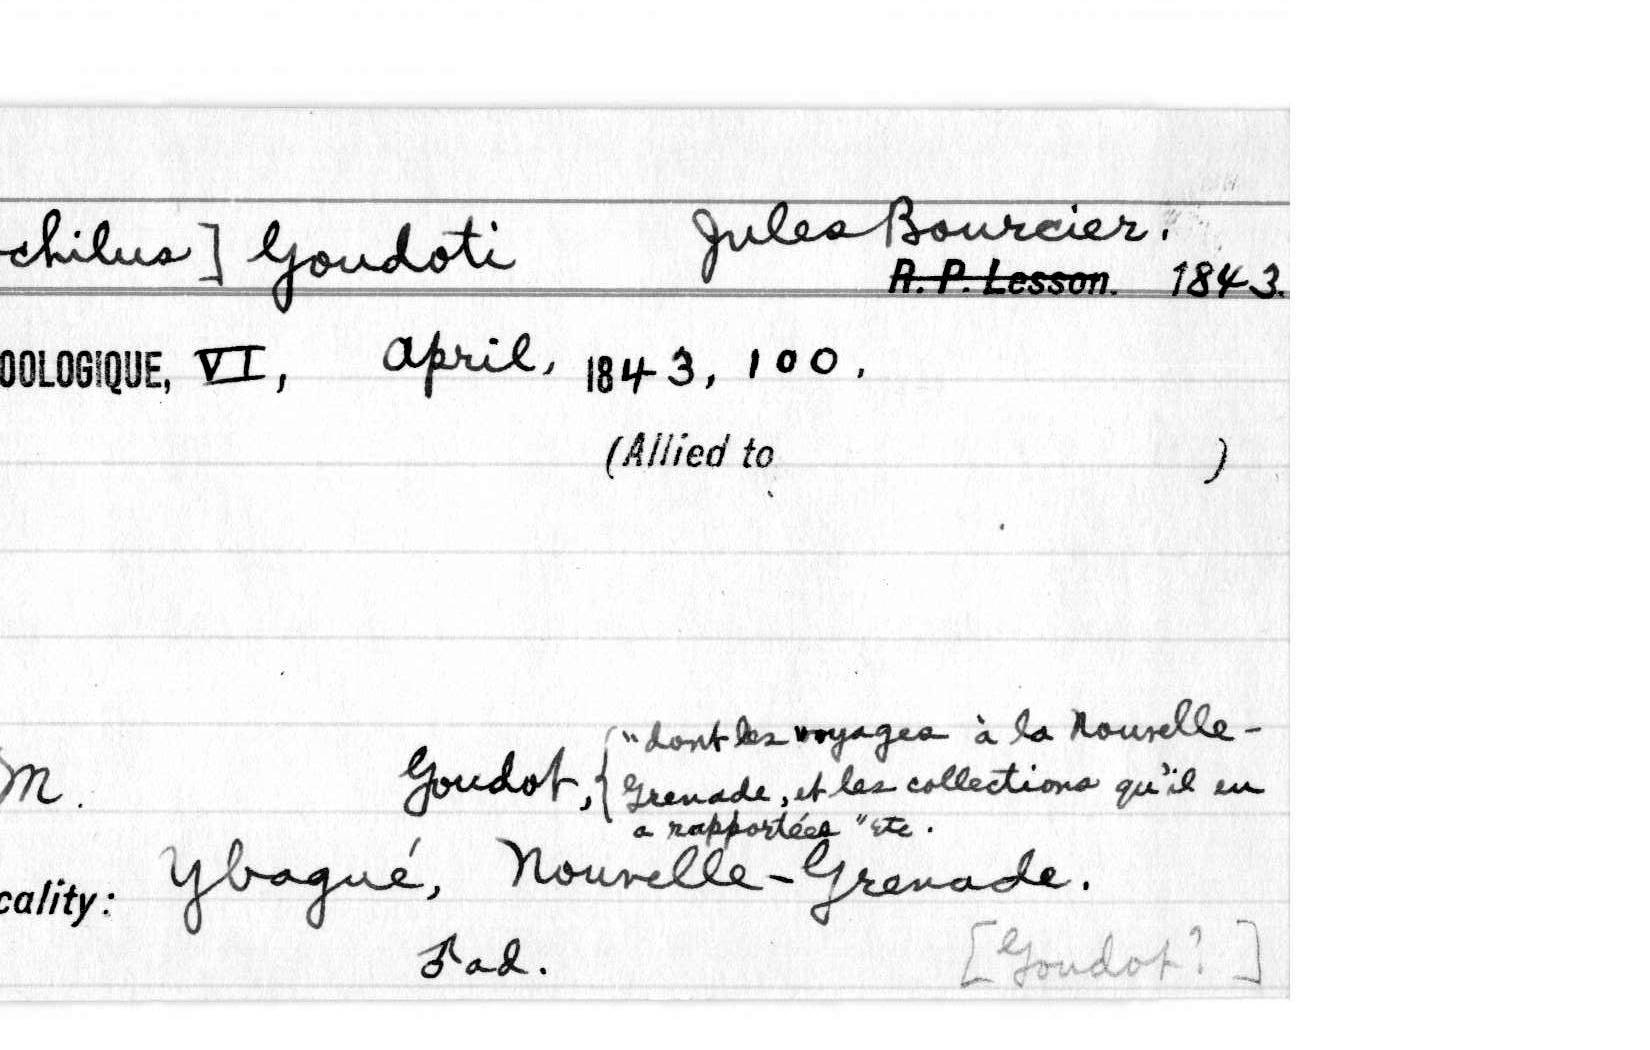 chilus] Goudoti Jules Bourcier.
R. P. Lesson. 1843.
OOLOGIQUE, VI, April, 1843, 100.
(Allied to )
"dont les voyages à la Nouvelle-
M. Goudot, { Grenade, et les collections qu'il en
a rapportées" etc.
cality: Ybagué, Nouvelle-Grenade.
ad. [Goudot?]